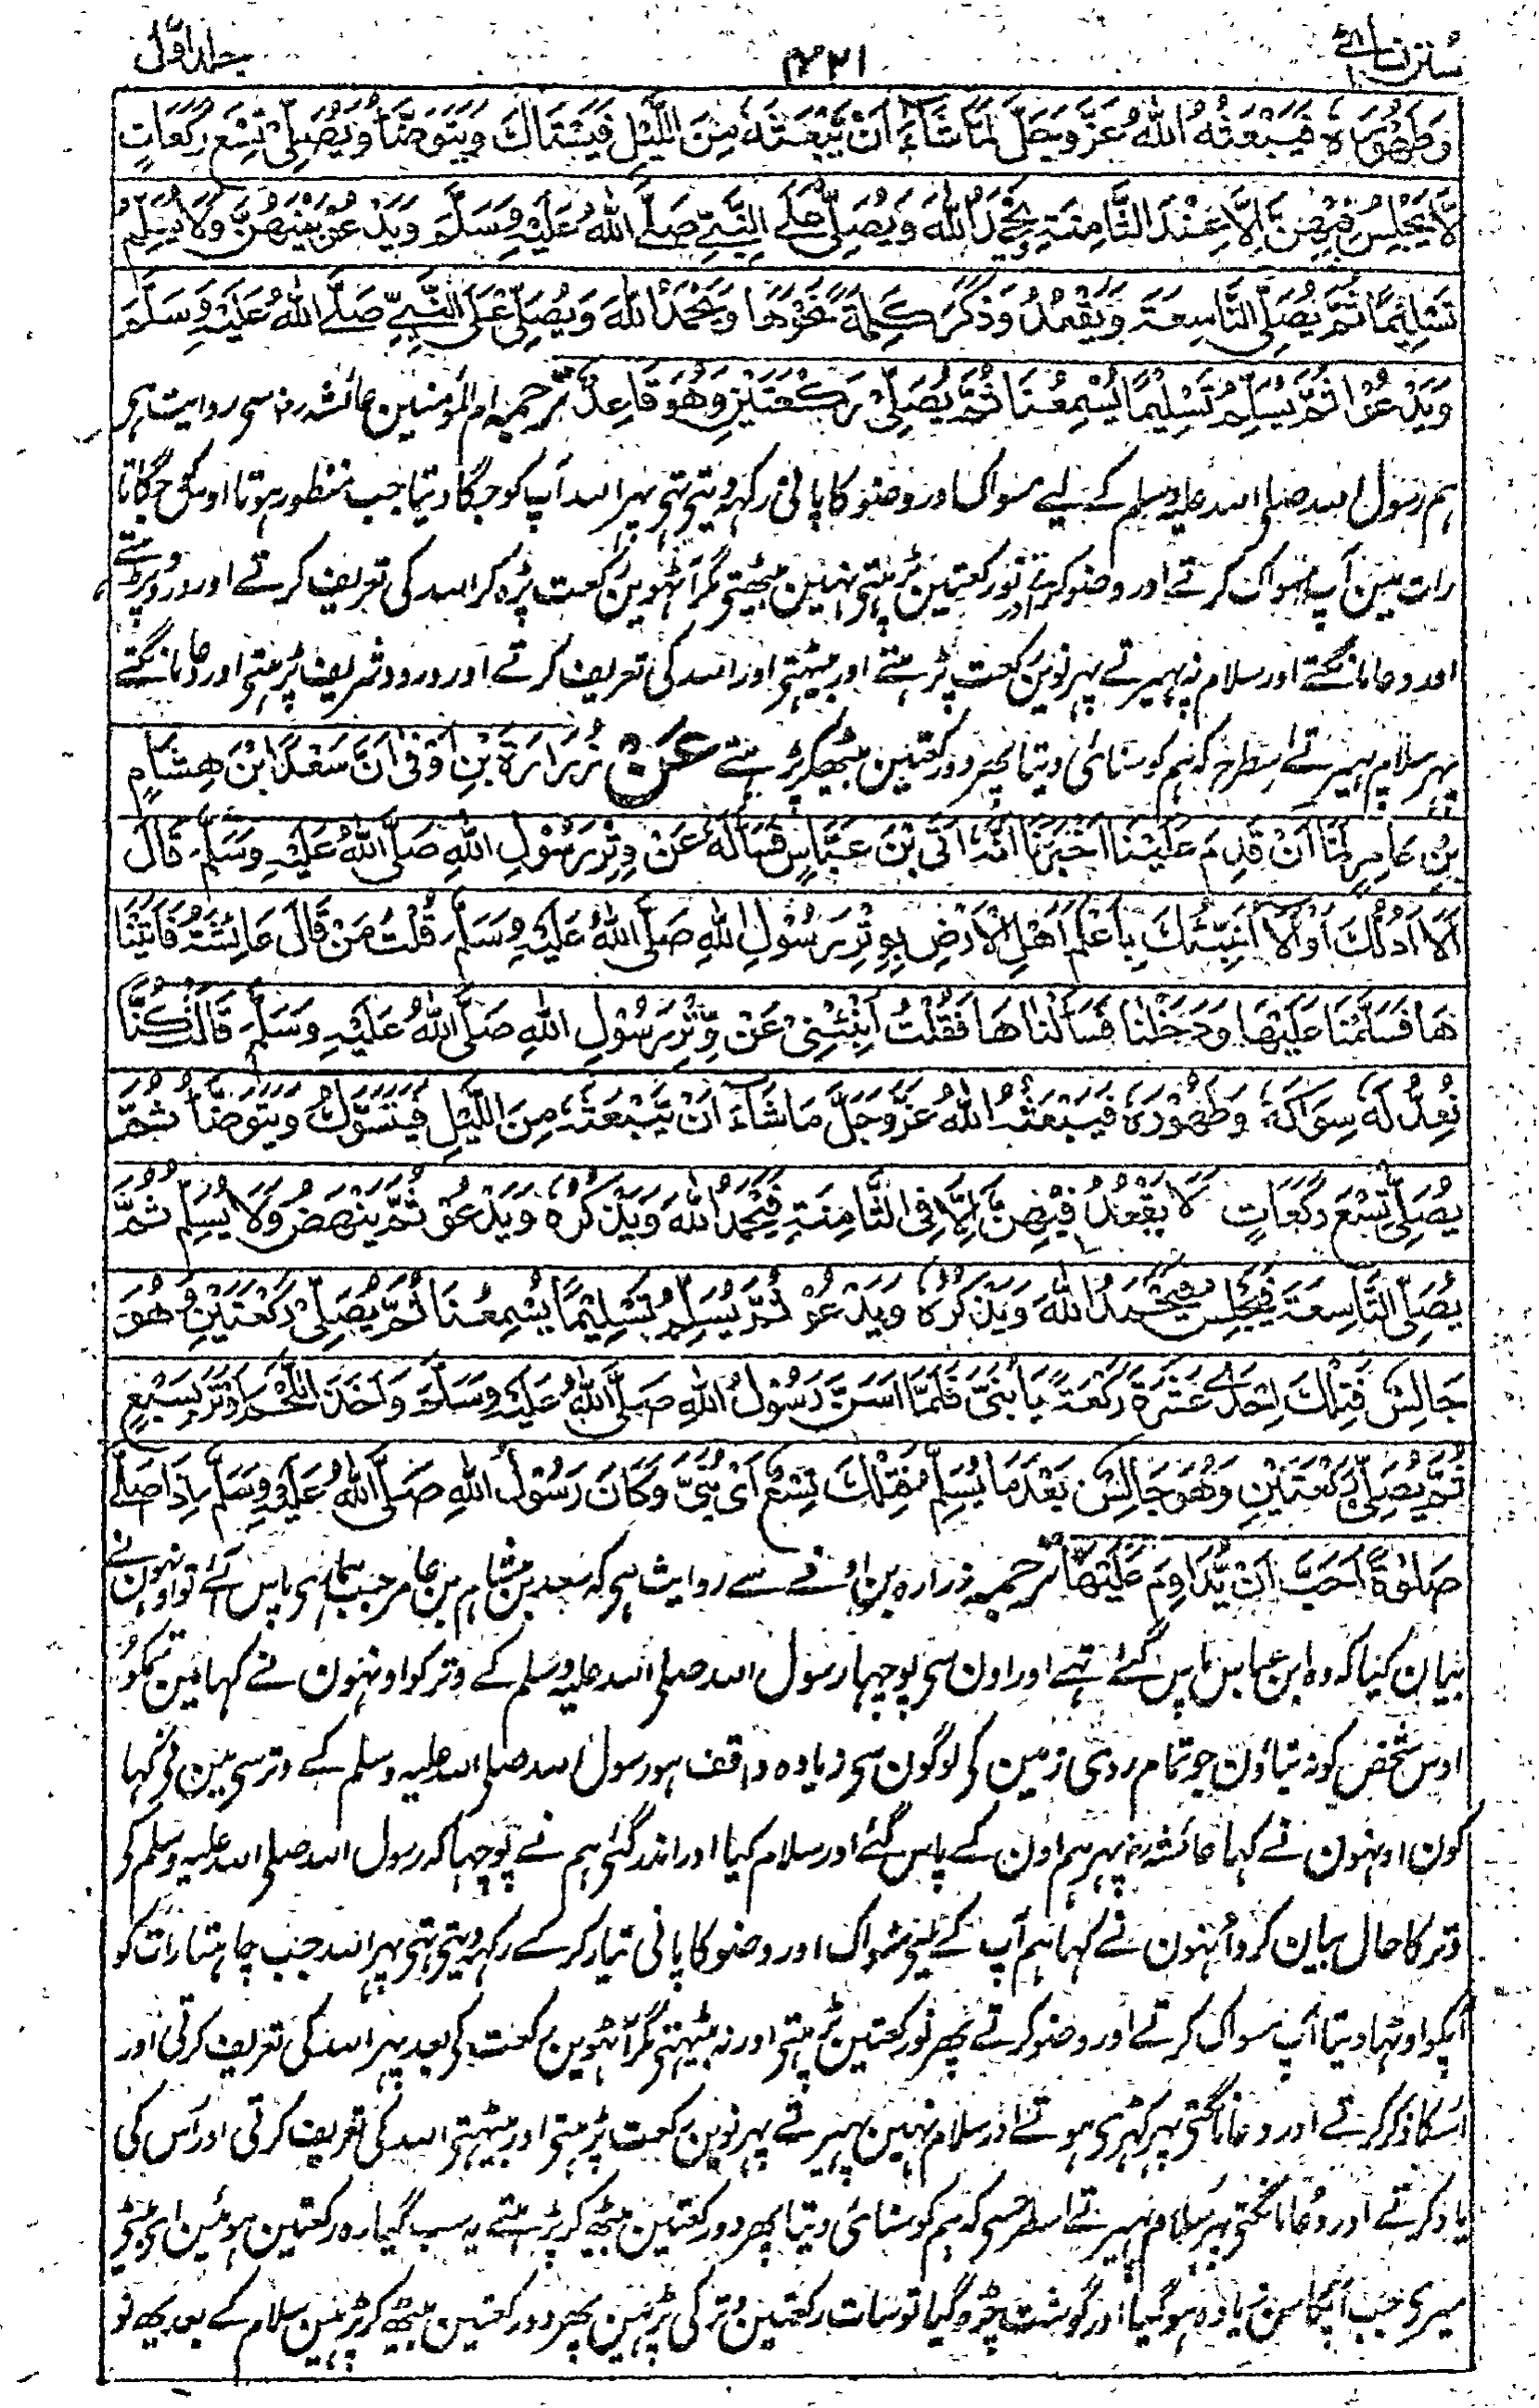 سنن نسائے ۴۲۱ جلد اوّل
وَطَهُوْرَهٗ فَيَبْعَثُهُ اللهُ عَزَّ وَجَلَّ لِمَا شَاءَ اَنْ يَّبْعَثَهٗ مِنَ اللَّيْلِ فَيَسْتَاكُ وَيَتَوَضَّأُ وَيُصَلِّيْ تِسْعَ رَكَعَاتٍ
لَّا يَجْلِسُ فِيْهِنَّ اِلَّا عِنْدَ الثَّامِنَةِ يَحْمَدُ اللهَ وَيُصَلِّيْ عَلَے النَّبِيِّ صَلَّے اللهُ عَلَيْهِ وَسَلَّمَ وَيَدْعُوْ بَيْنَهُنَّ وَلَا يُسَلِّمُ
تَسْلِيْمًا ثُمَّ يُصَلِّى التَّاسِعَةَ وَيَقْعُدُ وَذَكَرَ كَلِمَةً نَّحْوَهَا وَيَحْمَدُ اللهَ وَيُصَلِّيْ عَلَى النَّبِيِّ صَلَّے اللهُ عَلَيْهِ وَسَلَّمَ
وَيَدْعُوْا ثُمَّ يُسَلِّمُ تَسْلِيْمًا يُّسْمِعُنَا ثُمَّ يُصَلِّيْ رَكْعَتَيْنِ وَهُوَ قَاعِدٌ ترجمہ ام المؤمنین عائشہ رض سی روایت ہی
ہم رسول اللہ صلی اللہ علیہ وسلم کے لیے مسواک اور وضو کا پانی رکہہ دیتی تہی پہر اللہ آپ کو جگا دیتا جب منظور ہوتا اوسکو جگانا
رات مین آپ مسواک کرتے اور وضو کرتے اور نو رکعتین پڑہتی نہین بیٹھتی مگر آٹہوین رکعت پڑہ کر اللہ کی تعریف کرتے اور درود پڑہتے
اور دعا مانگتے اور سلام نہ پہیرتے پہر نوین رکعت پڑہتے اور بیٹہتی اور اللہ کی تعریف کرتے اور درود شریف پڑہتی اور دعا مانگتے
پہر سلام پہیرتے اسطرح کہ ہم کو سنائی دیتا پھر دو رکعتین بیٹھکر پڑہتے عَنْ زُرَارَةَ بْنِ اَوْفٰى اَنَّ سَعْدَ ابْنَ هِشَامٍ
بْنِ عَامِرٍ لَمَّا اَنْ قَدِمَ عَلَيْنَا اَخْبَرَنَا اَنَّهٗ اَتَى بْنَ عَبَّاسٍ فَسَاَلَهٗ عَنْ وِتْرِ رَسُوْلِ اللهِ صَلَّى اللهُ عَلَيْهِ وَسَلَّمَ قَالَ
اَلَا اَدُلُّكَ اَوْ اَلَا اُنَبِّئُكَ بِاَعْلَمِ اَهْلِ الْاَرْضِ بِوِتْرِ رَسُوْلِ اللهِ صَلَّى اللهُ عَلَيْهِ وَسَلَّمَ قُلْتُ مَنْ قَالَ عَائِشَةُ فَاَتَيْنَا
هَا فَسَلَّمْنَا عَلَيْهَا وَدَخَلْنَا فَسَاَلْنَاهَا فَقُلْتُ اَنْبِئِيْنِيْ عَنْ وِّتْرِ رَسُوْلِ اللهِ صَلَّى اللهُ عَلَيْهِ وَسَلَّمَ قَالَتْ كُنَّا
نُعِدُّ لَهٗ سِوَاكَهٗ وَطَهُوْرَهٗ فَيَبْعَثُهُ اللهُ عَزَّ وَجَلَّ مَا شَاءَ اَنْ يَّبْعَثَهٗ مِنَ اللَّيْلِ فَيَتَسَوَّكُ وَيَتَوَضَّأُ ثُمَّ
يُصَلِّيْ تِسْعَ رَكَعَاتٍ لَا يَقْعُدُ فِيْهِنَّ اِلَّا فِي الثَّامِنَةِ فَيَحْمَدُ اللهَ وَيَذْكُرُهٗ وَيَدْعُوْ ثُمَّ يَنْهَضُ وَلَا يُسَلِّمُ ثُمَّ
يُصَلِّى التَّاسِعَةَ فَيَجْلِسُ فَيَحْمَدُ اللهَ وَيَذْكُرُهٗ وَيَدْعُوْ ثُمَّ يُسَلِّمُ تَسْلِيْمًا يُّسْمِعُنَا ثُمَّ يُصَلِّيْ رَكْعَتَيْنِ وَهُوَ
جَالِسٌ فَتِلْكَ اِحْدٰے عَشْرَةَ رَكْعَةً يَا بُنَيَّ فَلَمَّا اَسَنَّ رَسُوْلُ اللهِ صَلَّى اللهُ عَلَيْهِ وَسَلَّمَ وَاَخَذَ اللَّحْمَ اَوْتَرَ بِسَبْعٍ
ثُمَّ يُصَلِّيْ رَكْعَتَيْنِ وَهُوَ جَالِسٌ بَعْدَ مَا يُسَلِّمُ فَتِلْكَ تِسْعٌ اَيْ بُنَيَّ وَكَانَ رَسُوْلُ اللهِ صَلَّى اللهُ عَلَيْهِ وَسَلَّمَ اِذَا صَلّٰے
صَلٰوةً اَحَبَّ اَنْ يُّدَاوِمَ عَلَيْهَا ترجمہ زرارہ بن اوفے سے روایت ہی کہ سعد بن ہشام بن عامر جب ہماری پاس آئے تو اونہون نے
بیان کیا کہ وہ ابن عباس پاس گئے تہے اور اون سی پوچہا رسول اللہ صلی اللہ علیہ وسلم کے وتر کو اونہون نے کہا مین تمکو
اوس شخص کو نہ بتاؤن جو تمام روی زمین کی لوگون سی زیادہ واقف ہو رسول اللہ صلی اللہ علیہ وسلم کے وتر سی مین نی کہا
کون اونہون نے کہا عائشہ رض پہر ہم اون کے پاس گئے اور سلام کیا اور اندر گئی ہم نے پوچہا کہ رسول اللہ صلی اللہ علیہ وسلم کی
وتر کا حال بیان کرو اُنہون نے کہا ہم آپ کے لیئی مسواک اور وضو کا پانی تیار کرکے رکہہ دیتی تہی پہر اللہ جب چاہتا رات کو
آپکو اوٹہا دیتا آپ مسواک کرتے اور وضو کرتے پھر نو رکعتین پڑہتی اور نہ بیٹہتی مگر آٹہوین رکعت کی بعد پہر اللہ کی تعریف کرتی اور
اسکا ذکر کرتے اور دعا مانگتی پہر کہڑی ہوتے اور سلام نہین پہیرتے پہر نوین رکعت پڑہتی اور بیٹہتی اللہ کی تعریف کرتی اور اس کی
یاد کرتے اور دُعا مانگتی پہر سلام پہیرتے اسطرحسی کہ ہم کو سنائی دیتا پھر دو رکعتین بیٹھے کر پڑہتے یہ سب گیارہ رکعتین ہوئین ای بیٹی
میری جب آپکا سن زیادہ ہو گیا اور گوشت چڑہ گیا تو سات رکعتین وتر کی پڑہین پھر دو رکعتین بیٹھے کر پڑہین سلام کے بعد یے نو